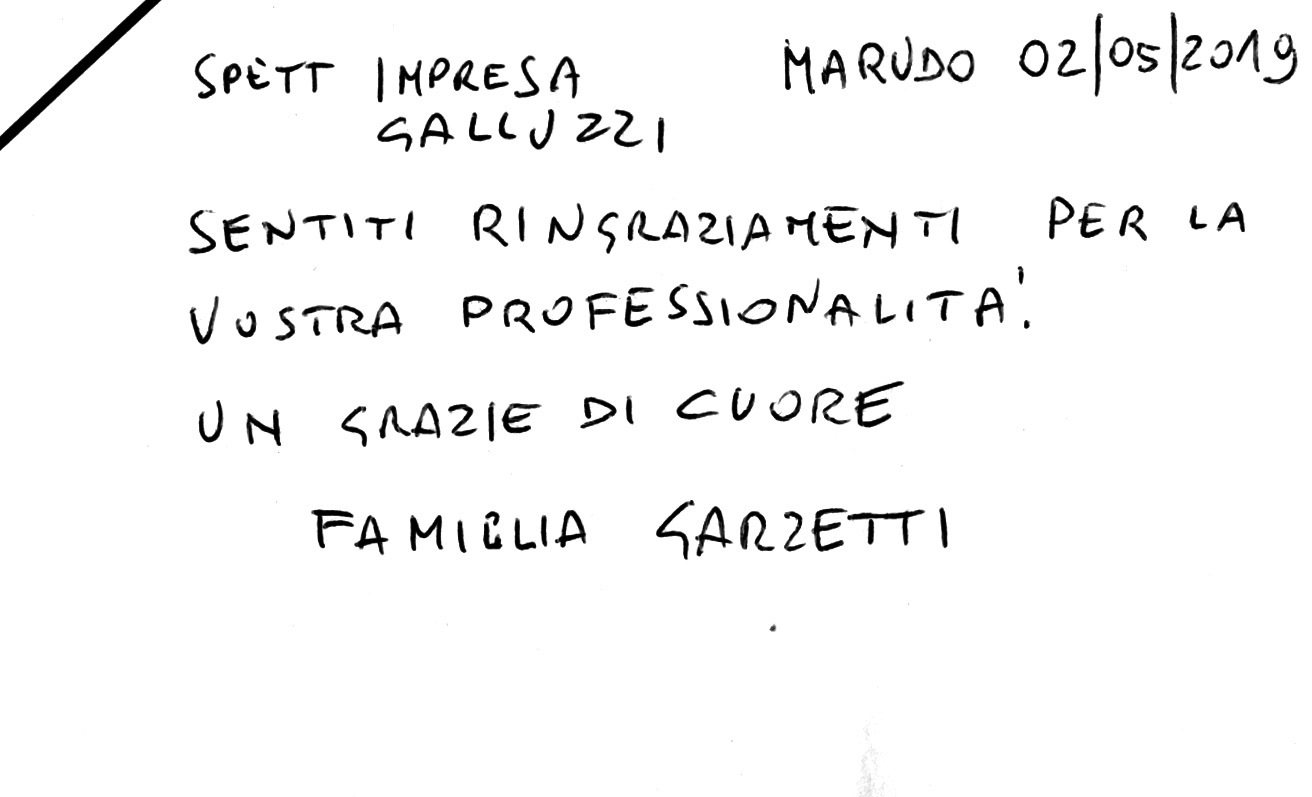 SPETT IMPRESA MARUDO 02/05/2019
GALLUZZI
SENTITI RINGRAZIAMENTI PER LA
VOSTRA PROFESSIONALITA'.
UN GRAZIE DI CUORE
FAMIGLIA GARZETTI